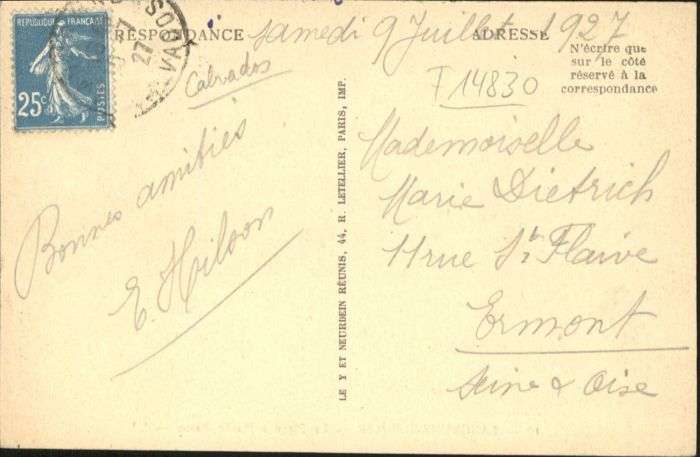 RÉPUBLIQUE FRANÇAISE
25c
POSTES
27
CALVA
RESPONDANCE
samedi 9 Juillet 1927
Calvados
Bonnes amitiés
E. Hilson
LE Y ET NEURDEIN RÉUNIS, 44, R. LETELLIER, PARIS, IMP.
ADRESSE
N'écrire que
sur le côté
réservé à la
correspondance
T 14830
Mademoiselle
Marie Dietrich
11 rue St Flaive
Ermont
Seine & Oise